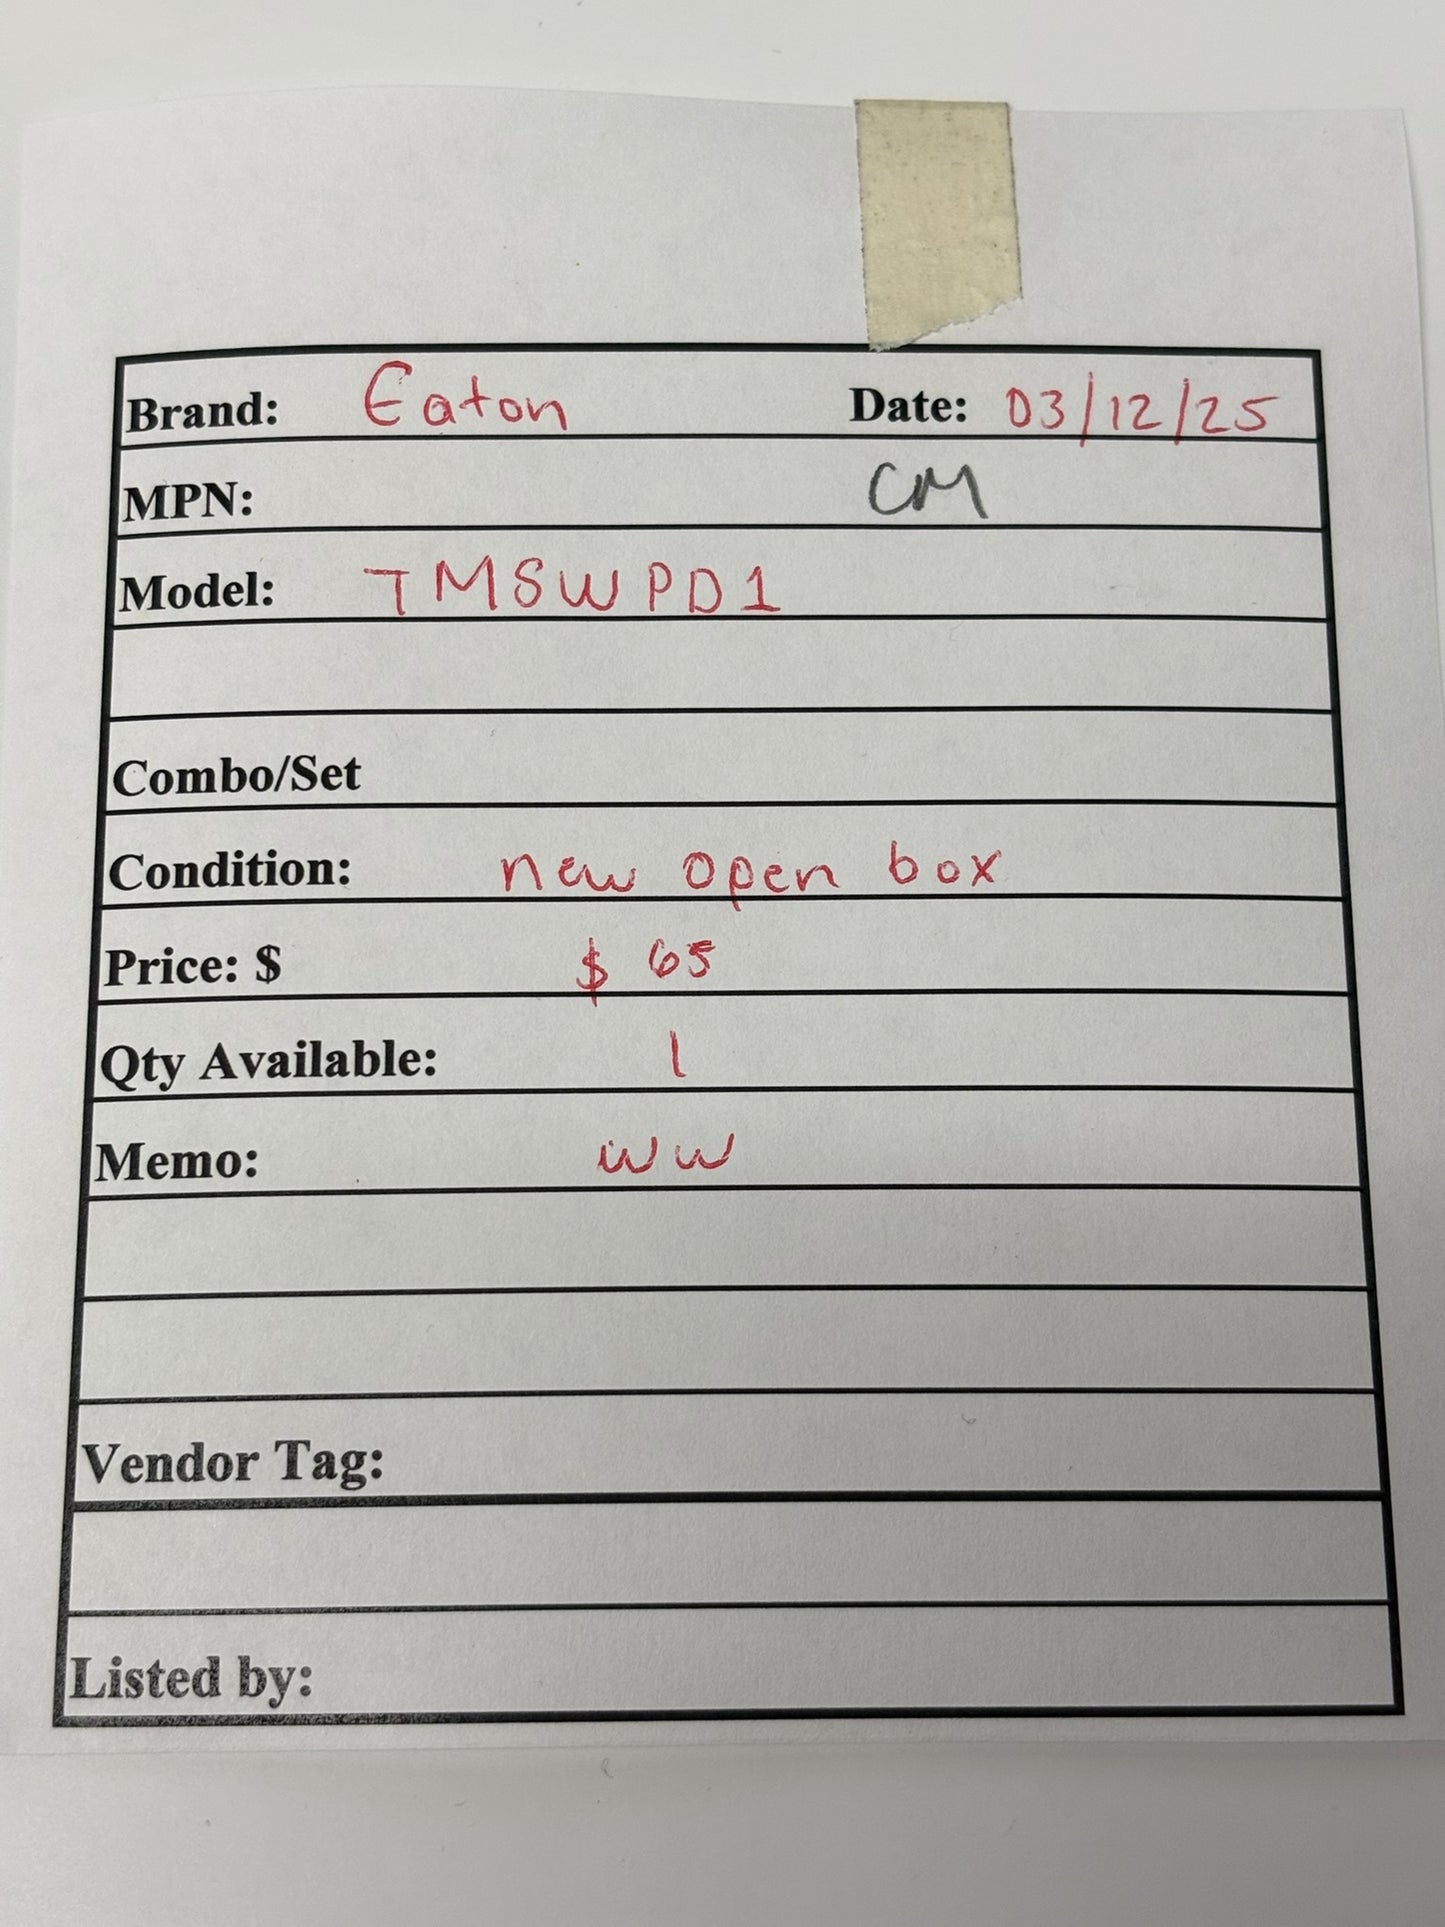 Brand: Eaton Date: 03/12/25
MPN: CM
Model: TM8WPD1
Combo/Set
Condition: new open box
Price: $ $ 65
Qty Available: 1
Memo: WW
Vendor Tag:
Listed by: